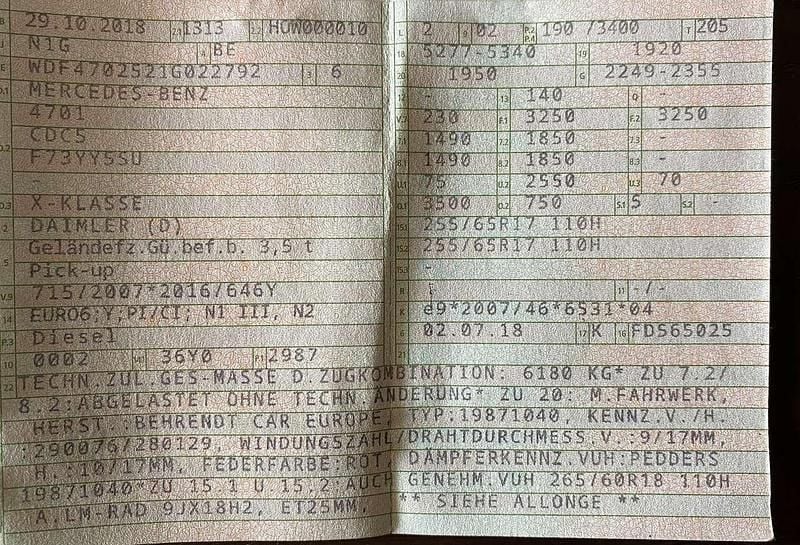 B 29.10.2018 2.1 1313 2.2 HOW000010
J N1G 4 BE
E WDF4702521G022792 3 6
D.1 MERCEDES-BENZ
4701
D.2 CDC5
F73YY5SU
-
D.3 X-KLASSE
2 DAIMLER (D)
5 Geländefz.Gü.bef.b. 3,5 t
Pick-up
V.9 715/2007*2016/646Y
14 EURO6;Y;PI/CI; N1 III, N2
P.3 Diesel
10 0002 14.1 36Y0 P.1 2987
L 2 9 02 P.2 P.4 190 /3400 T 205
18 5277-5340 19 1920
20 1950 G 2249-2355
12 - 13 140 Q -
V.7 230 F.1 3250 F.2 3250
7.1 1490 7.2 1850 7.3 -
8.1 1490 8.2 1850 8.3 -
U.1 75 U.2 2550 U.3 70
O.1 3500 O.2 750 S.1 5 S.2 -
15.1 255/65R17 110H
15.2 255/65R17 110H
15.3 -
R 11 -/-
K e9*2007/46*6531*04
6 02.07.18 17 K 16 FD565025
21
22 TECHN.ZUL.GES-MASSE D.ZUGKOMBINATION: 6180 KG* ZU 7.2/
8.2:ABGELASTET OHNE TECHN.ÄNDERUNG* ZU 20: M.FAHRWERK,
HERST.:BEHRENDT CAR EUROPE, TYP:19871040, KENNZ.V./H.
:290076/280129, WINDUNGSZAHL/DRAHTDURCHMESS.V.:9/17MM,
H.:10/17MM, FEDERFARBE:ROT, DÄMPFERKENNZ.VUH:PEDDERS
19871040*ZU 15.1 U.15.2:AUCH GENEHM.VUH 265/60R18 110H
A.LM-RAD 9JX18H2, ET25MM, ** SIEHE ALLONGE **